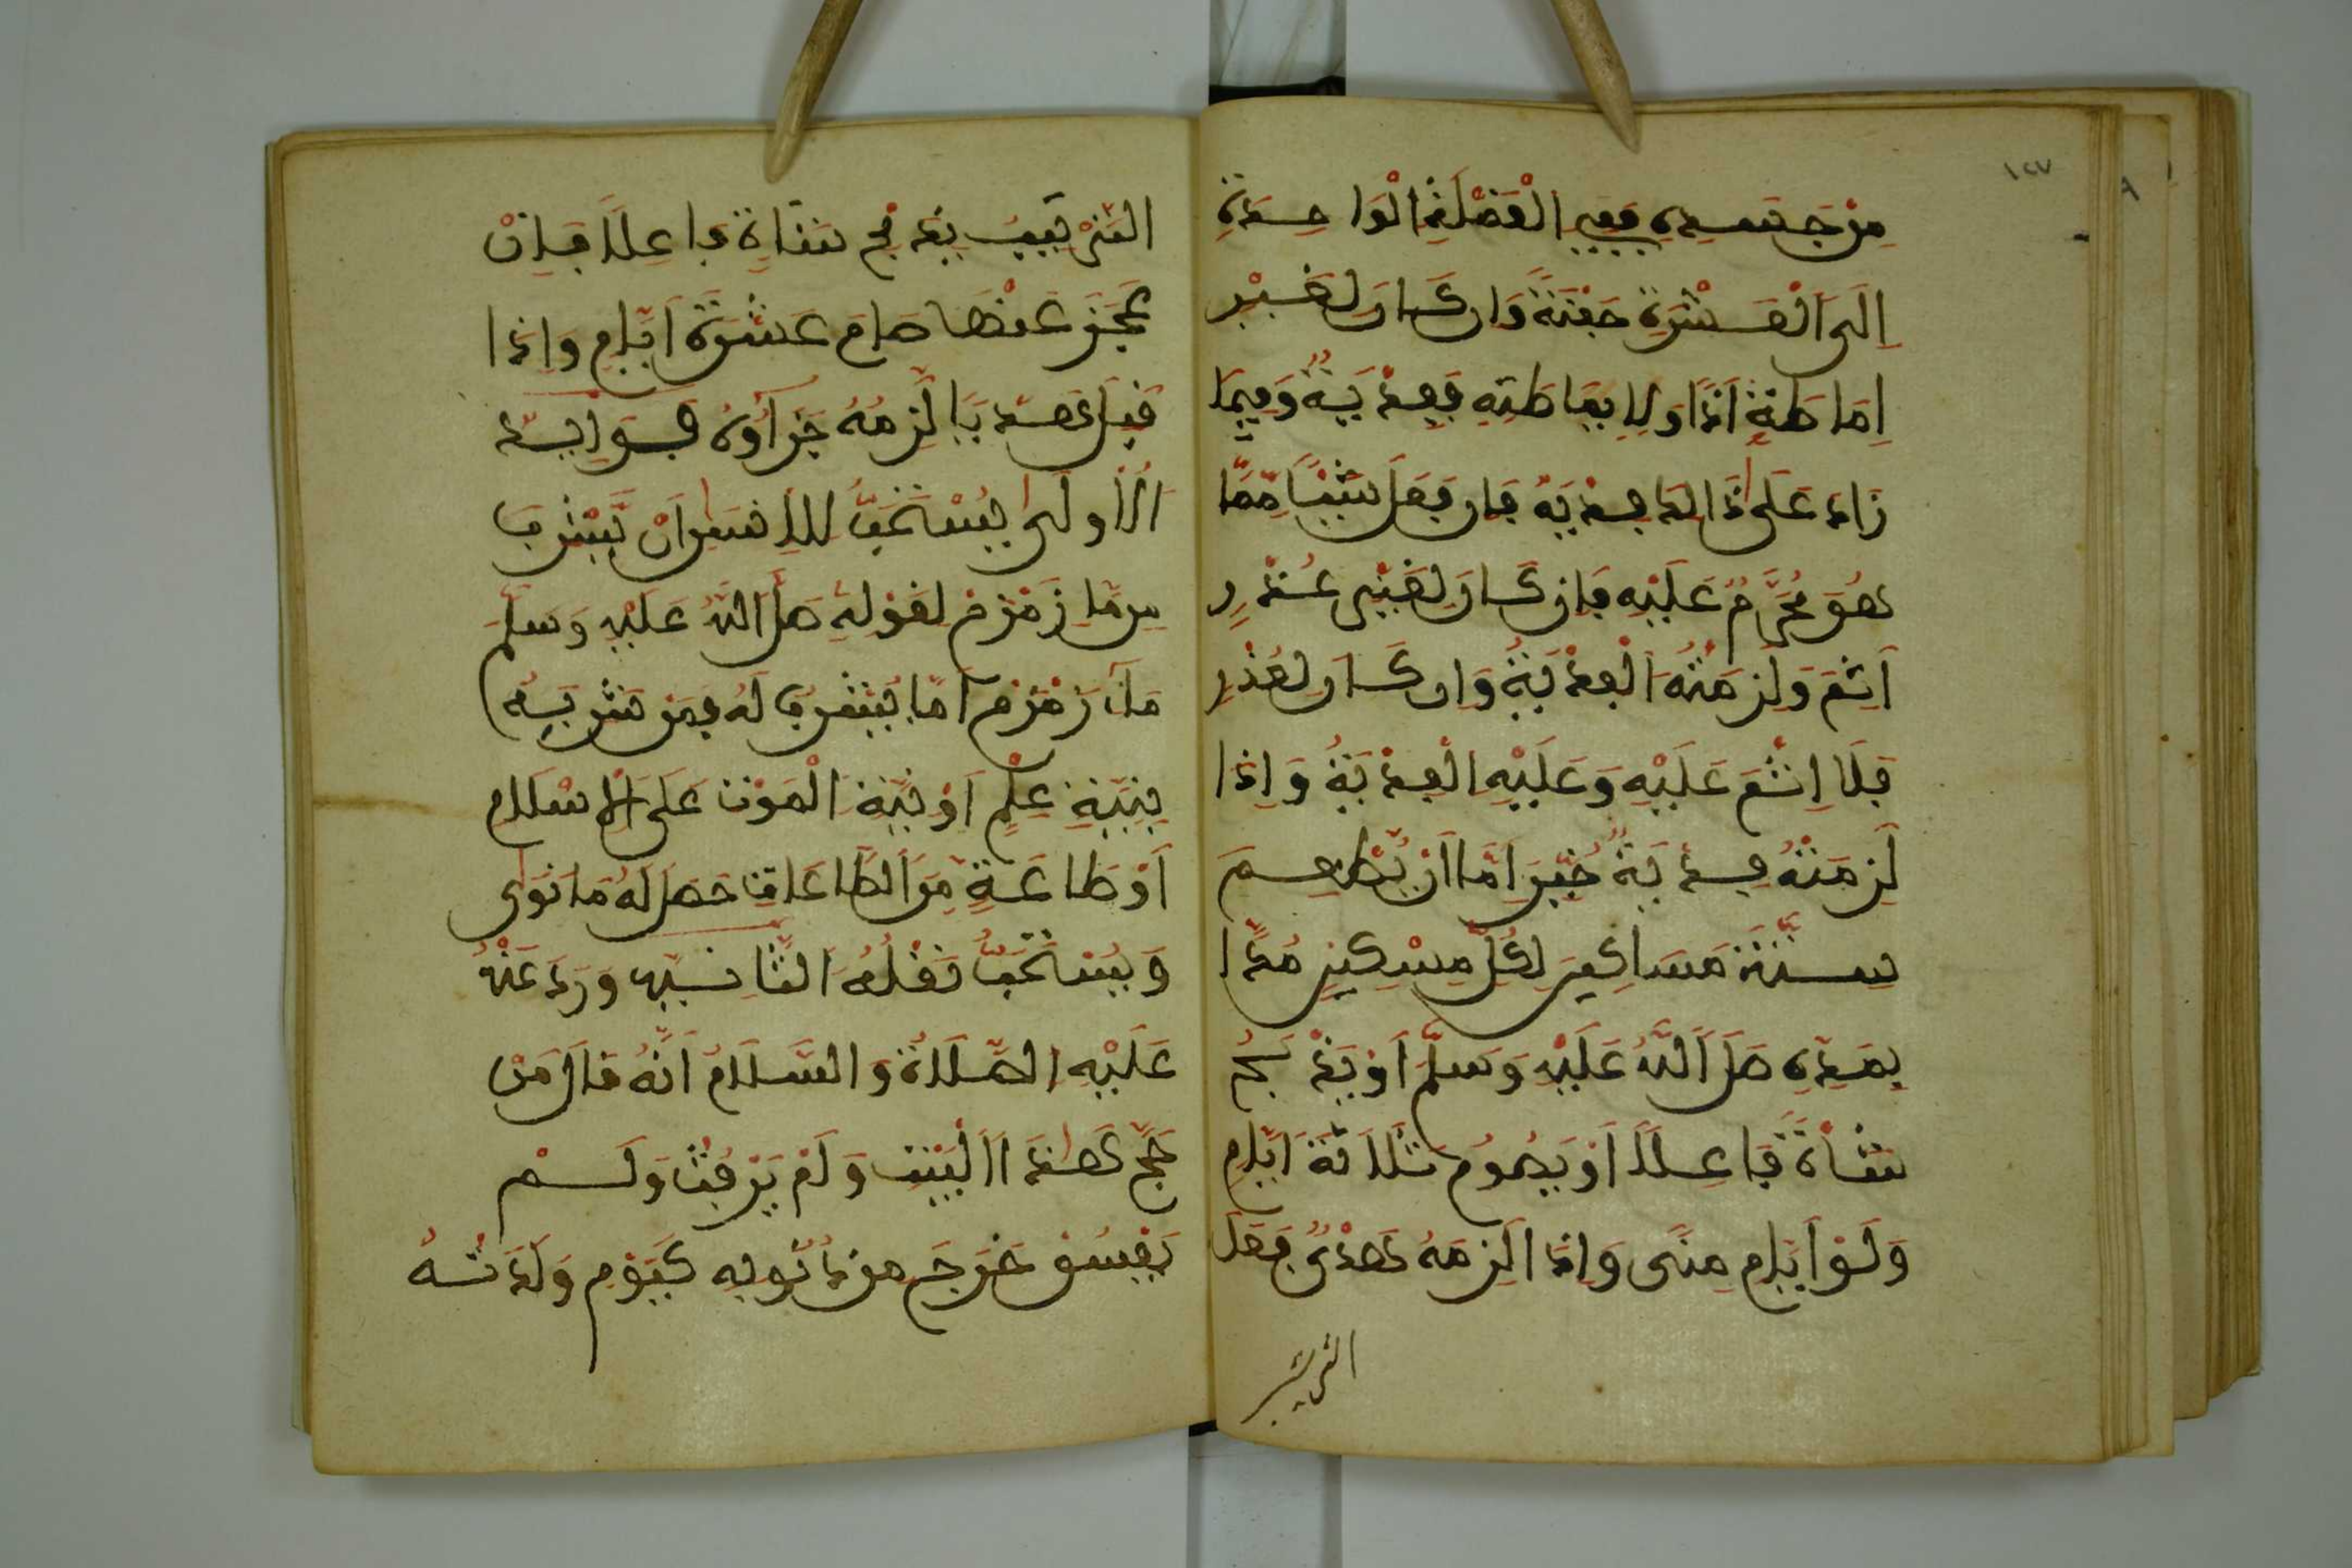 ١٢٧
مِنْ جَسَدِهِ فَفِي الْقَمْلَةِ الْوَاحِدَةِ
إِلَى الْعَشَرَةِ حَفْنَةٌ وَإِنْ كَانَ لِغَيْرِ
إِمَاطَةِ أَذًى أَوْ لِإِمَاطَتِهِ فَفِدْيَةٌ وَفِيمَا
زَادَ عَلَى ذَالِكَ فِدْيَةٌ فَإِنْ فَعَلَ شَيْئًا مِمَّا
هُوَ مُحَرَّمٌ عَلَيْهِ فَإِنْ كَانَ لِغَيْرِ عُذْرٍ
أَثِمَ وَلَزِمَتْهُ الْفِدْيَةُ وَإِنْ كَانَ لِعُذْرٍ
فَلَا إِثْمَ عَلَيْهِ وَعَلَيْهِ الْفِدْيَةُ وَإِذَا
لَزِمَتْهُ فِدْيَةٌ خُيِّرَ إِمَّا أَنْ يُطْعِمَ
سِتَّةَ مَسَاكِينَ لِكُلِّ مِسْكِينٍ مُدًّا
بِمُدِّهِ صَلَّى اللَّهُ عَلَيْهِ وَسَلَّمَ أَوْ يَذْبَحُ
شَاةً فَأَعْلَا أَوْ يَصُومُ ثَلَاثَةَ أَيَّامٍ
وَلَوْ أَيَّامَ مِنًى وَإِذَا لَزِمَهُ هَدْيٌ فَعَلَ
بِذَبْحِ شَاةٍ فَأَعْلَا فَإِنْ
عَجَزَ عَنْهَا صَامَ عَشَرَةَ أَيَّامٍ وَإِذَا
قَتَلَ صَيْدًا لَزِمَهُ جَزَاؤُهُ
الْأُولَى يُسْتَحَبُّ لِلْإِنْسَانِ أَنْ يَشْرَبَ
مِنْ مَاءِ زَمْزَمَ لِقَوْلِهِ صَلَّى اللَّهُ عَلَيْهِ وَسَلَّمَ
مَاءُ زَمْزَمَ لِمَا يُشْرَبُ لَهُ فَمَنْ شَرِبَهُ
بِنِيَّةِ عِلْمٍ أَوْ نِيَّةِ الْمَوْتِ عَلَى الْإِسْلَامِ
أَوْ طَاعَةٍ مِنَ الطَّاعَاتِ حَصَلَ لَهُ مَا نَوَى
وَيُسْتَحَبُّ نَقْلُهُ الثَّانِيَةُ وَرَدَ عَنْهُ
عَلَيْهِ الصَّلَاةُ وَالسَّلَامُ أَنَّهُ قَالَ مَنْ
حَجَّ هَذَا الْبَيْتَ وَلَمْ يَرْفُثْ وَلَمْ
يَفْسُقْ خَرَجَ مِنْ ذُنُوبِهِ كَيَوْمِ وَلَدَتْهُ